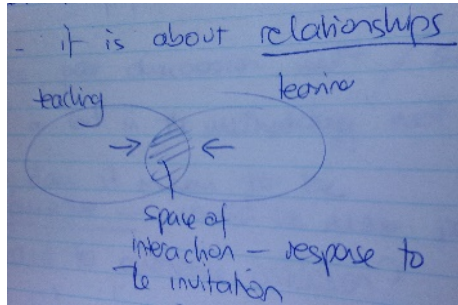 - it is about relationships
teaching
learning
space of
interaction - response to
the invitation